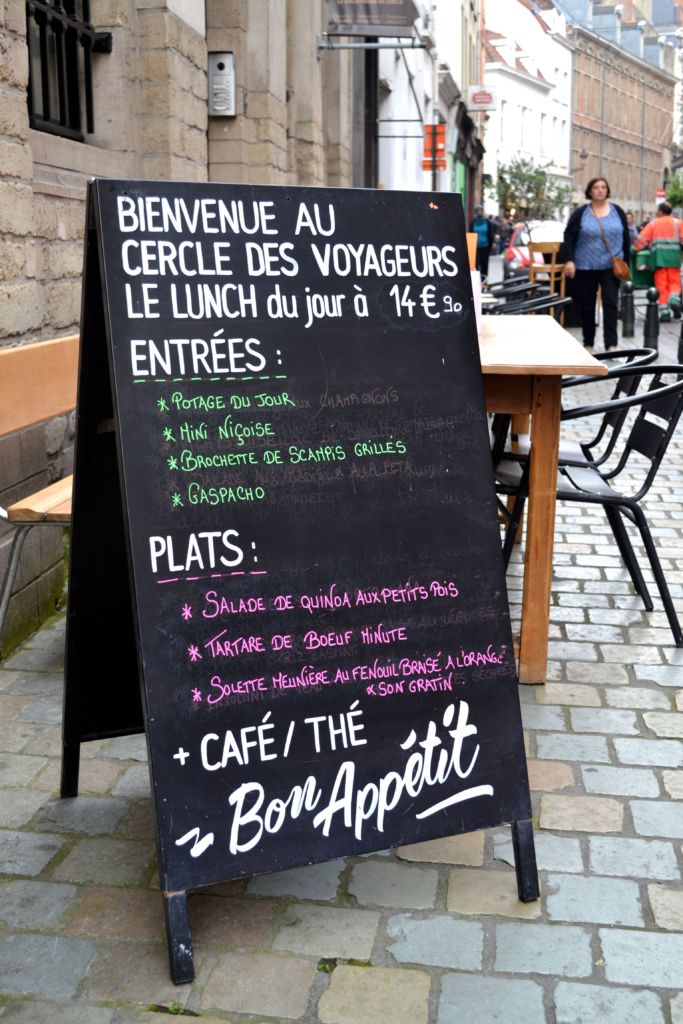 BIENVENUE AU
CERCLE DES VOYAGEURS
LE LUNCH du jour à 14€90
ENTRÉES :
* POTAGE DU JOUR
* MINI NIÇOISE
* BROCHETTE DE SCAMPIS GRILLÉS
* GASPACHO
PLATS :
* SALADE DE QUINOA AUX PETITS POIS
* TARTARE DE BOEUF MINUTE
* SOLETTE MEUNIÈRE AU FENOUIL BRAISÉ A L'ORANGE
& SON GRATIN
+ CAFÉ / THÉ
Bon Appétit